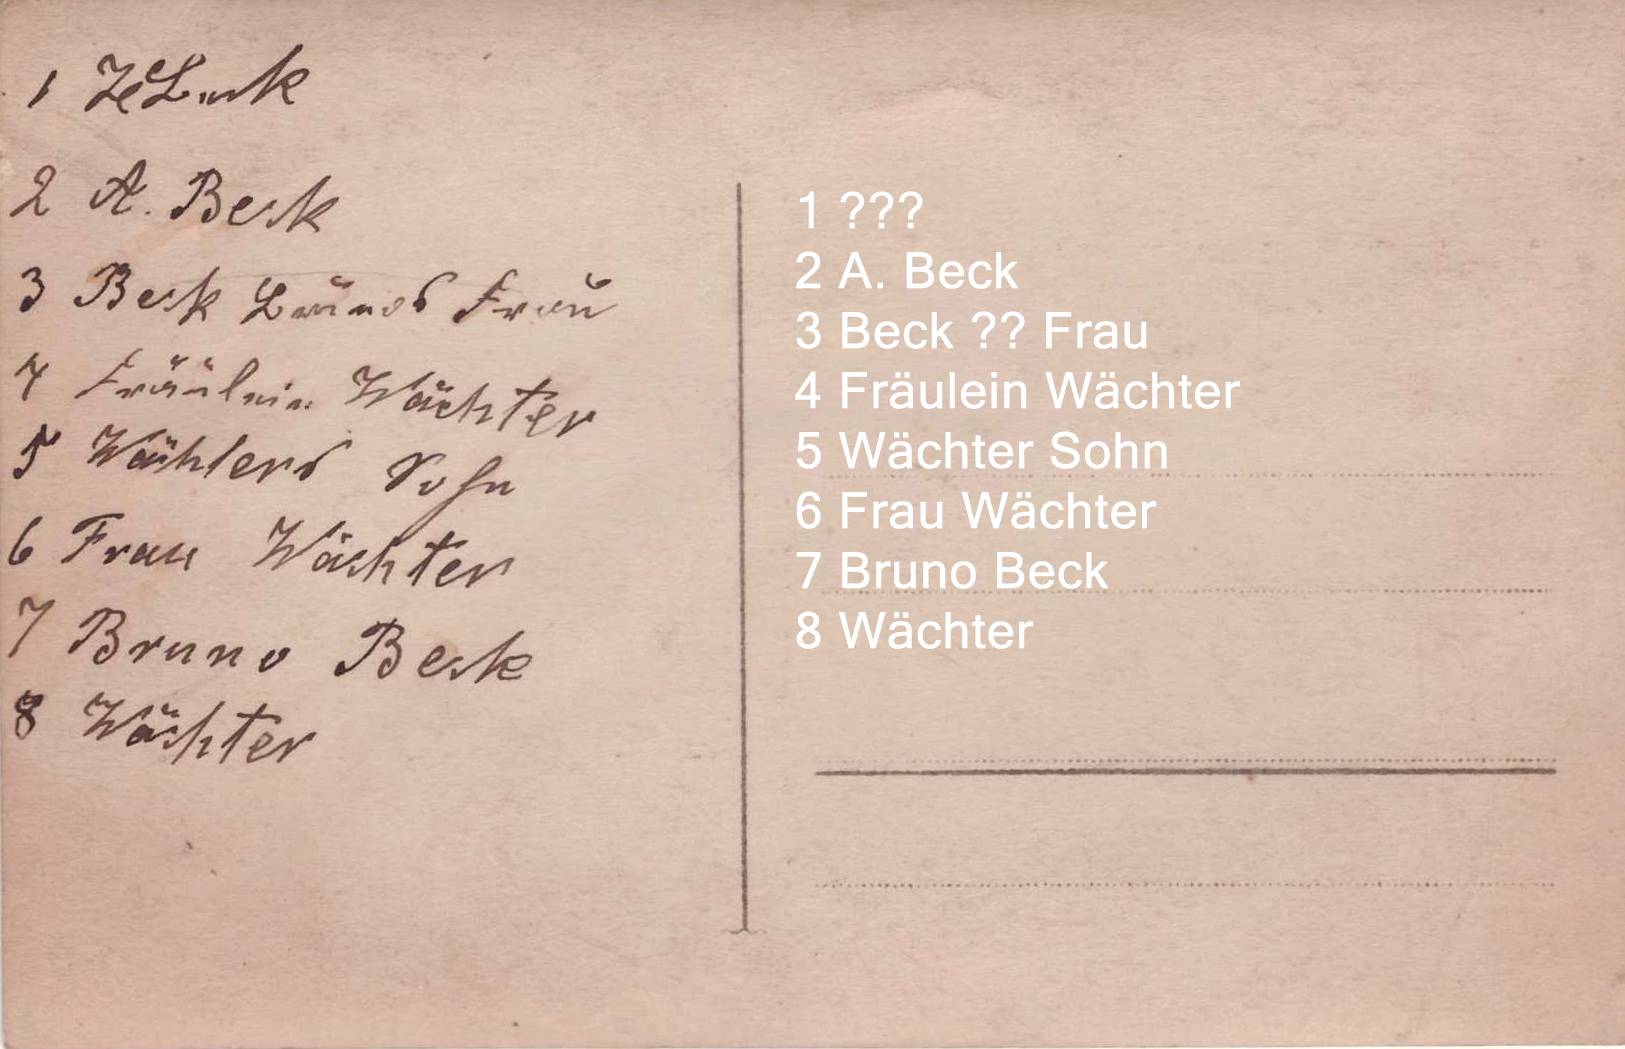 1 Beck
2 A. Beck
3 Beck Brunos Frau
4 Fräulein Wächter
5 Wächters Sohn
6 Frau Wächter
7 Bruno Beck
8 Wächter
1 ???
2 A. Beck
3 Beck ?? Frau
4 Fräulein Wächter
5 Wächter Sohn
6 Frau Wächter
7 Bruno Beck
8 Wächter